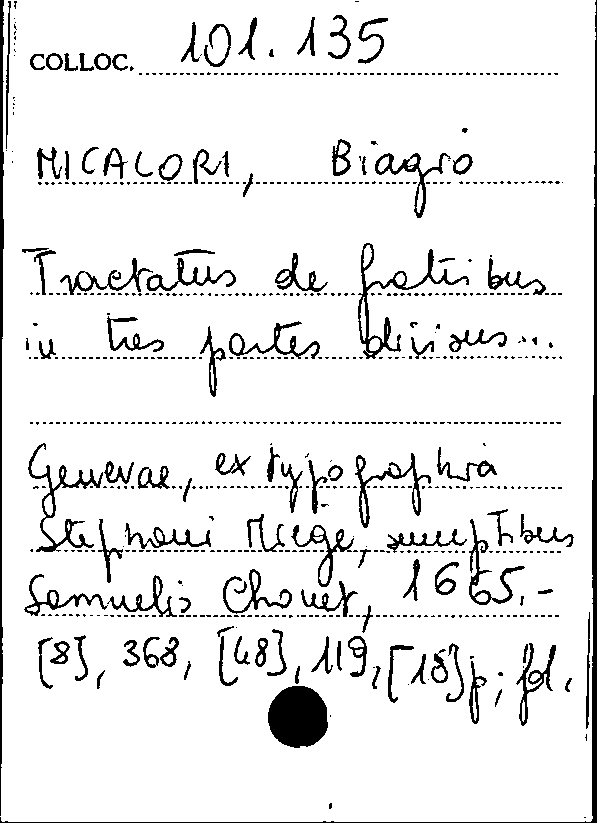 COLLOC. 101.135
MICALORI, Biagio
Tractatus de fratribus
in tres partes divisus...
Genevae, ex typographia
Stephani Miege, sumptibus
Samuelis Chouet, 1665.-
[8], 368, [48], 119, [18] p; fol.